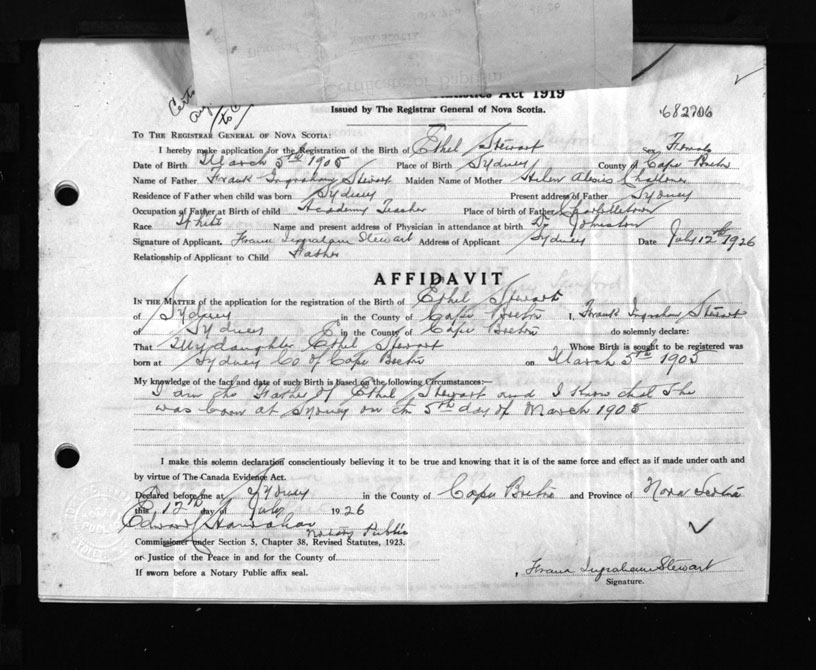 Statistics Act 1919
Issued by The Registrar General of Nova Scotia.
682706
To The Registrar General of Nova Scotia:
I hereby make application for the Registration of the Birth of Ethel Stewart Sex Female
Date of Birth March 5th 1905 Place of Birth Sydney County of Cape Breton
Name of Father Frank Ingraham Stewart Maiden Name of Mother Helen Alexis Challoner
Residence of Father when child was born Sydney Present address of Father Sydney
Occupation of Father at Birth of child Academy Teacher Place of birth of Father Charlottetown
Race White Name and present address of Physician in attendance at birth Dr Johnston
Signature of Applicant. Frank Ingraham Stewart Address of Applicant Sydney Date July 12th 1926
Relationship of Applicant to Child Father
AFFIDAVIT
In the Matter of the application for the registration of the Birth of Ethel Stewart
of Sydney in the County of Cape Breton I, Frank Ingraham Stewart
of Sydney in the County of Cape Breton do solemnly declare:
That My daughter Ethel Stewart Whose Birth is sought to be registered was
born at Sydney Co of Cape Breton on March 5th 1905
My knowledge of the fact and date of such Birth is based on the following Circumstances:—
I am the Father of Ethel Stewart and I know that she
was born at Sydney on the 5th day of March 1905
I make this solemn declaration conscientiously believing it to be true and knowing that it is of the same force and effect as if made under oath and
by virtue of The Canada Evidence Act.
Declared before me at Sydney in the County of Cape Breton and Province of Nova Scotia
this 12th day of July 1926
Edward Hanrahan
Notary Public
Commissioner under Section 5, Chapter 38, Revised Statutes, 1923.
or Justice of the Peace in and for the County of
If sworn before a Notary Public affix seal.
Frank Ingraham Stewart
Signature.